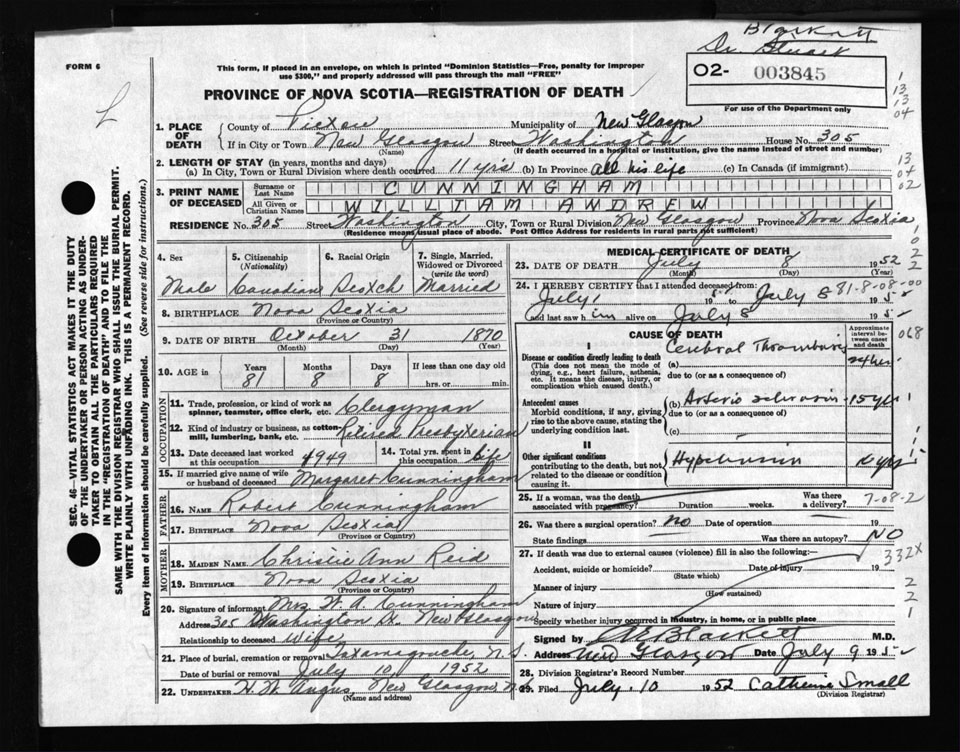 Blackett
Dr. Stuart
FORM 6
This form, if placed in an envelope, on which is printed "Dominion Statistics—Free, penalty for improper
use $300," and properly addressed will pass through the mail "FREE"
O2- 003845
PROVINCE OF NOVA SCOTIA—REGISTRATION OF DEATH
For use of the Department only
1. PLACE OF DEATH
County of Pictou Municipality of New Glasgow
If in City or Town New Glasgow Street Washington House No. 305
(Name) (If death occurred in a hospital or institution, give the name instead of street and number)
2. LENGTH OF STAY (in years, months and days)
(a) In City, Town or Rural Division where death occurred 11 yrs (b) In Province All his life (c) In Canada (if immigrant)
3. PRINT NAME OF DECEASED
Surname or Last Name CUNNINGHAM
All Given or Christian Names WILLIAM ANDREW
RESIDENCE No. 305 Street Washington City, Town or Rural Division New Glasgow Province Nova Scotia
(Residence means usual place of abode. Post Office Address for residents in rural parts not sufficient)
4. Sex
Male
5. Citizenship (Nationality)
Canadian
6. Racial Origin
Scotch
7. Single, Married, Widowed or Divorced (write the word)
Married
8. BIRTHPLACE Nova Scotia
(Province or Country)
9. DATE OF BIRTH October 31 1870
(Month) (Day) (Year)
10. AGE in Years Months Days If less than one day old
81 8 8 hrs. or min.
OCCUPATION
11. Trade, profession, or kind of work as
spinner, teamster, office clerk, etc. Clergyman
12. Kind of industry or business, as cotton
mill, lumbering, bank, etc. Retired Presbyterian
13. Date deceased last worked
at this occupation 1949
14. Total yrs. spent in
this occupation life
15. If married give name of wife
or husband of deceased Margaret Cunningham
FATHER
16. NAME Robert Cunningham
17. BIRTHPLACE Nova Scotia
(Province or Country)
MOTHER
18. MAIDEN NAME Christie Ann Reid
19. BIRTHPLACE Nova Scotia
(Province or Country)
20. Signature of informant Mrs. W. A. Cunningham
Address 305 Washington St. New Glasgow
Relationship to deceased Wife
21. Place of burial, cremation or removal Tatamagouche, N.S.
Date of burial or removal July 10 1952
22. UNDERTAKER H. W. Angus, New Glasgow, N.S.
(Name and address)
MEDICAL CERTIFICATE OF DEATH
23. DATE OF DEATH July 8 1952
(Month) (Day) (Year)
24. I HEREBY CERTIFY that I attended deceased from:
July 1 1952 to July 8 1952
81-8-08-00
and last saw him alive on July 8 1952
CAUSE OF DEATH
Approximate interval between onset and death
I
Disease or condition directly leading to death
(This does not mean the mode of
dying, e.g., heart failure, asthenia,
etc. It means the disease, injury, or
complication which caused death.)
Cerebral Thrombosis
(a)
due to (or as a consequence of)
Antecedent causes
Morbid conditions, if any, giving
rise to the above cause, stating the
underlying condition last.
(b) Arterio sclerosis 15 yrs
due to (or as a consequence of)
(c)
II
Other significant conditions
contributing to the death, but not
related to the disease or condition
causing it.
Hypertension 10 yrs
25. If a woman, was the death
associated with pregnancy? Duration weeks. Was there a delivery?
7-08-2
26. Was there a surgical operation? No Date of operation 19
State findings Was there an autopsy? NO
27. If death was due to external causes (violence) fill in also the following:—
332X
Accident, suicide or homicide? Date of injury 19
(State which)
Manner of injury
(How sustained)
Nature of injury
Specify whether injury occurred in industry, in home, or in public place
Signed by Blackett M.D.
Address New Glasgow Date July 9 1952
28. Division Registrar's Record Number
29. Filed July 10 1952 Catherine Small
(Division Registrar)
SEC. 46—VITAL STATISTICS ACT MAKES IT THE DUTY
OF THE UNDERTAKER OR PERSON ACTING AS UNDER-
TAKER TO OBTAIN ALL THE PARTICULARS REQUIRED
IN THE "REGISTRATION OF DEATH" AND TO FILE THE
SAME WITH THE DIVISION REGISTRAR WHO SHALL ISSUE THE BURIAL PERMIT.
WRITE PLAINLY WITH UNFADING INK. THIS IS A PERMANENT RECORD.
Every item of information should be carefully supplied. (See reverse side for instructions.)
1
13
13
04
13
04
02
1
0
2
2
068
1
2
2
1